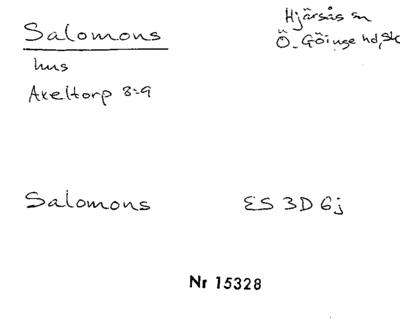 Salomons
Hjärsås sn
Ö. Göinge hd, Sk
hus
Axeltorp 8:9
Salomons
ES 3D 6j
Nr 15328